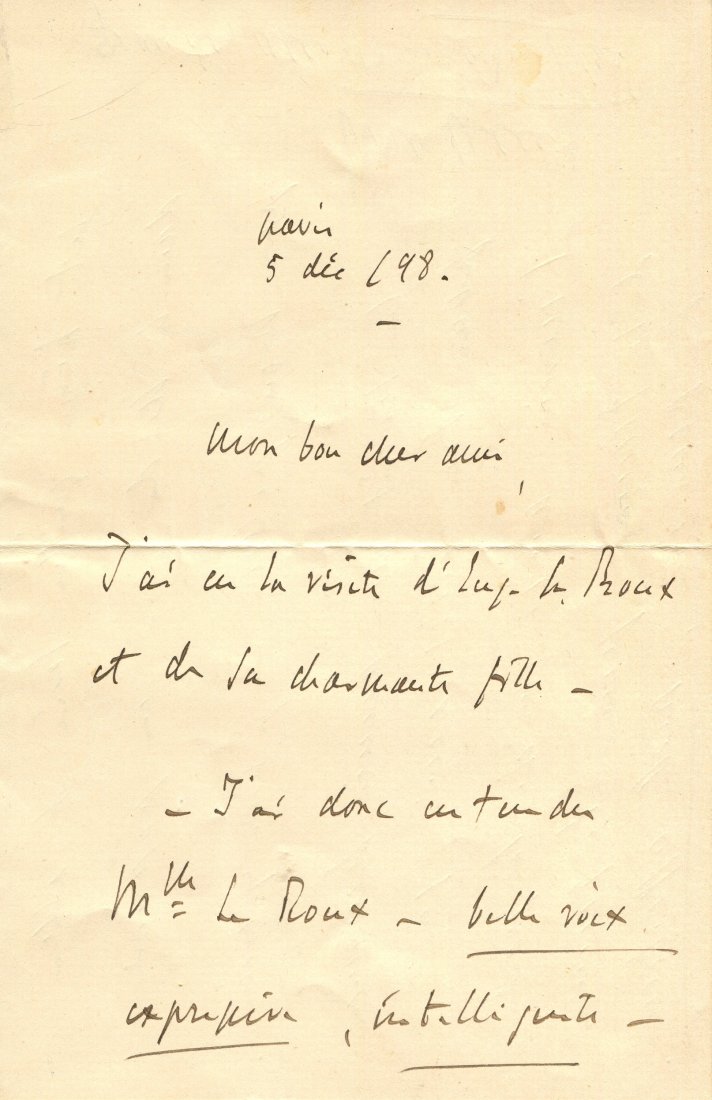 paris
5 déc /98.
mon bon cher ami,
J'ai eu la visite d'Eug. Le Roux
et de sa charmante fille –
– J'ai donc entendu
Mlle Le Roux – belle voix
expressive, intelligente –